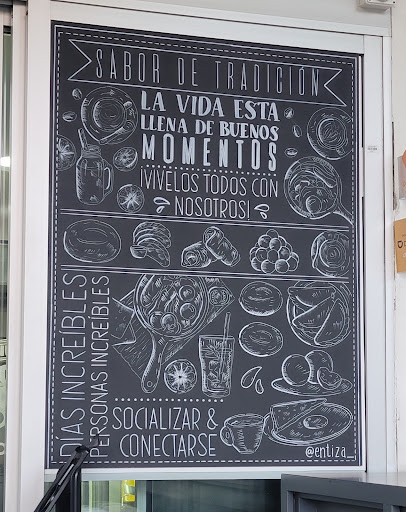 SABOR DE TRADICIÓN
LA VIDA ESTA
LLENA DE BUENOS
MOMENTOS
¡VIVELOS TODOS CON
NOSOTROS!
DÍAS INCREÍBLES
PERSONAS INCREÍBLES
SOCIALIZAR &
CONECTARSE
@entiza_